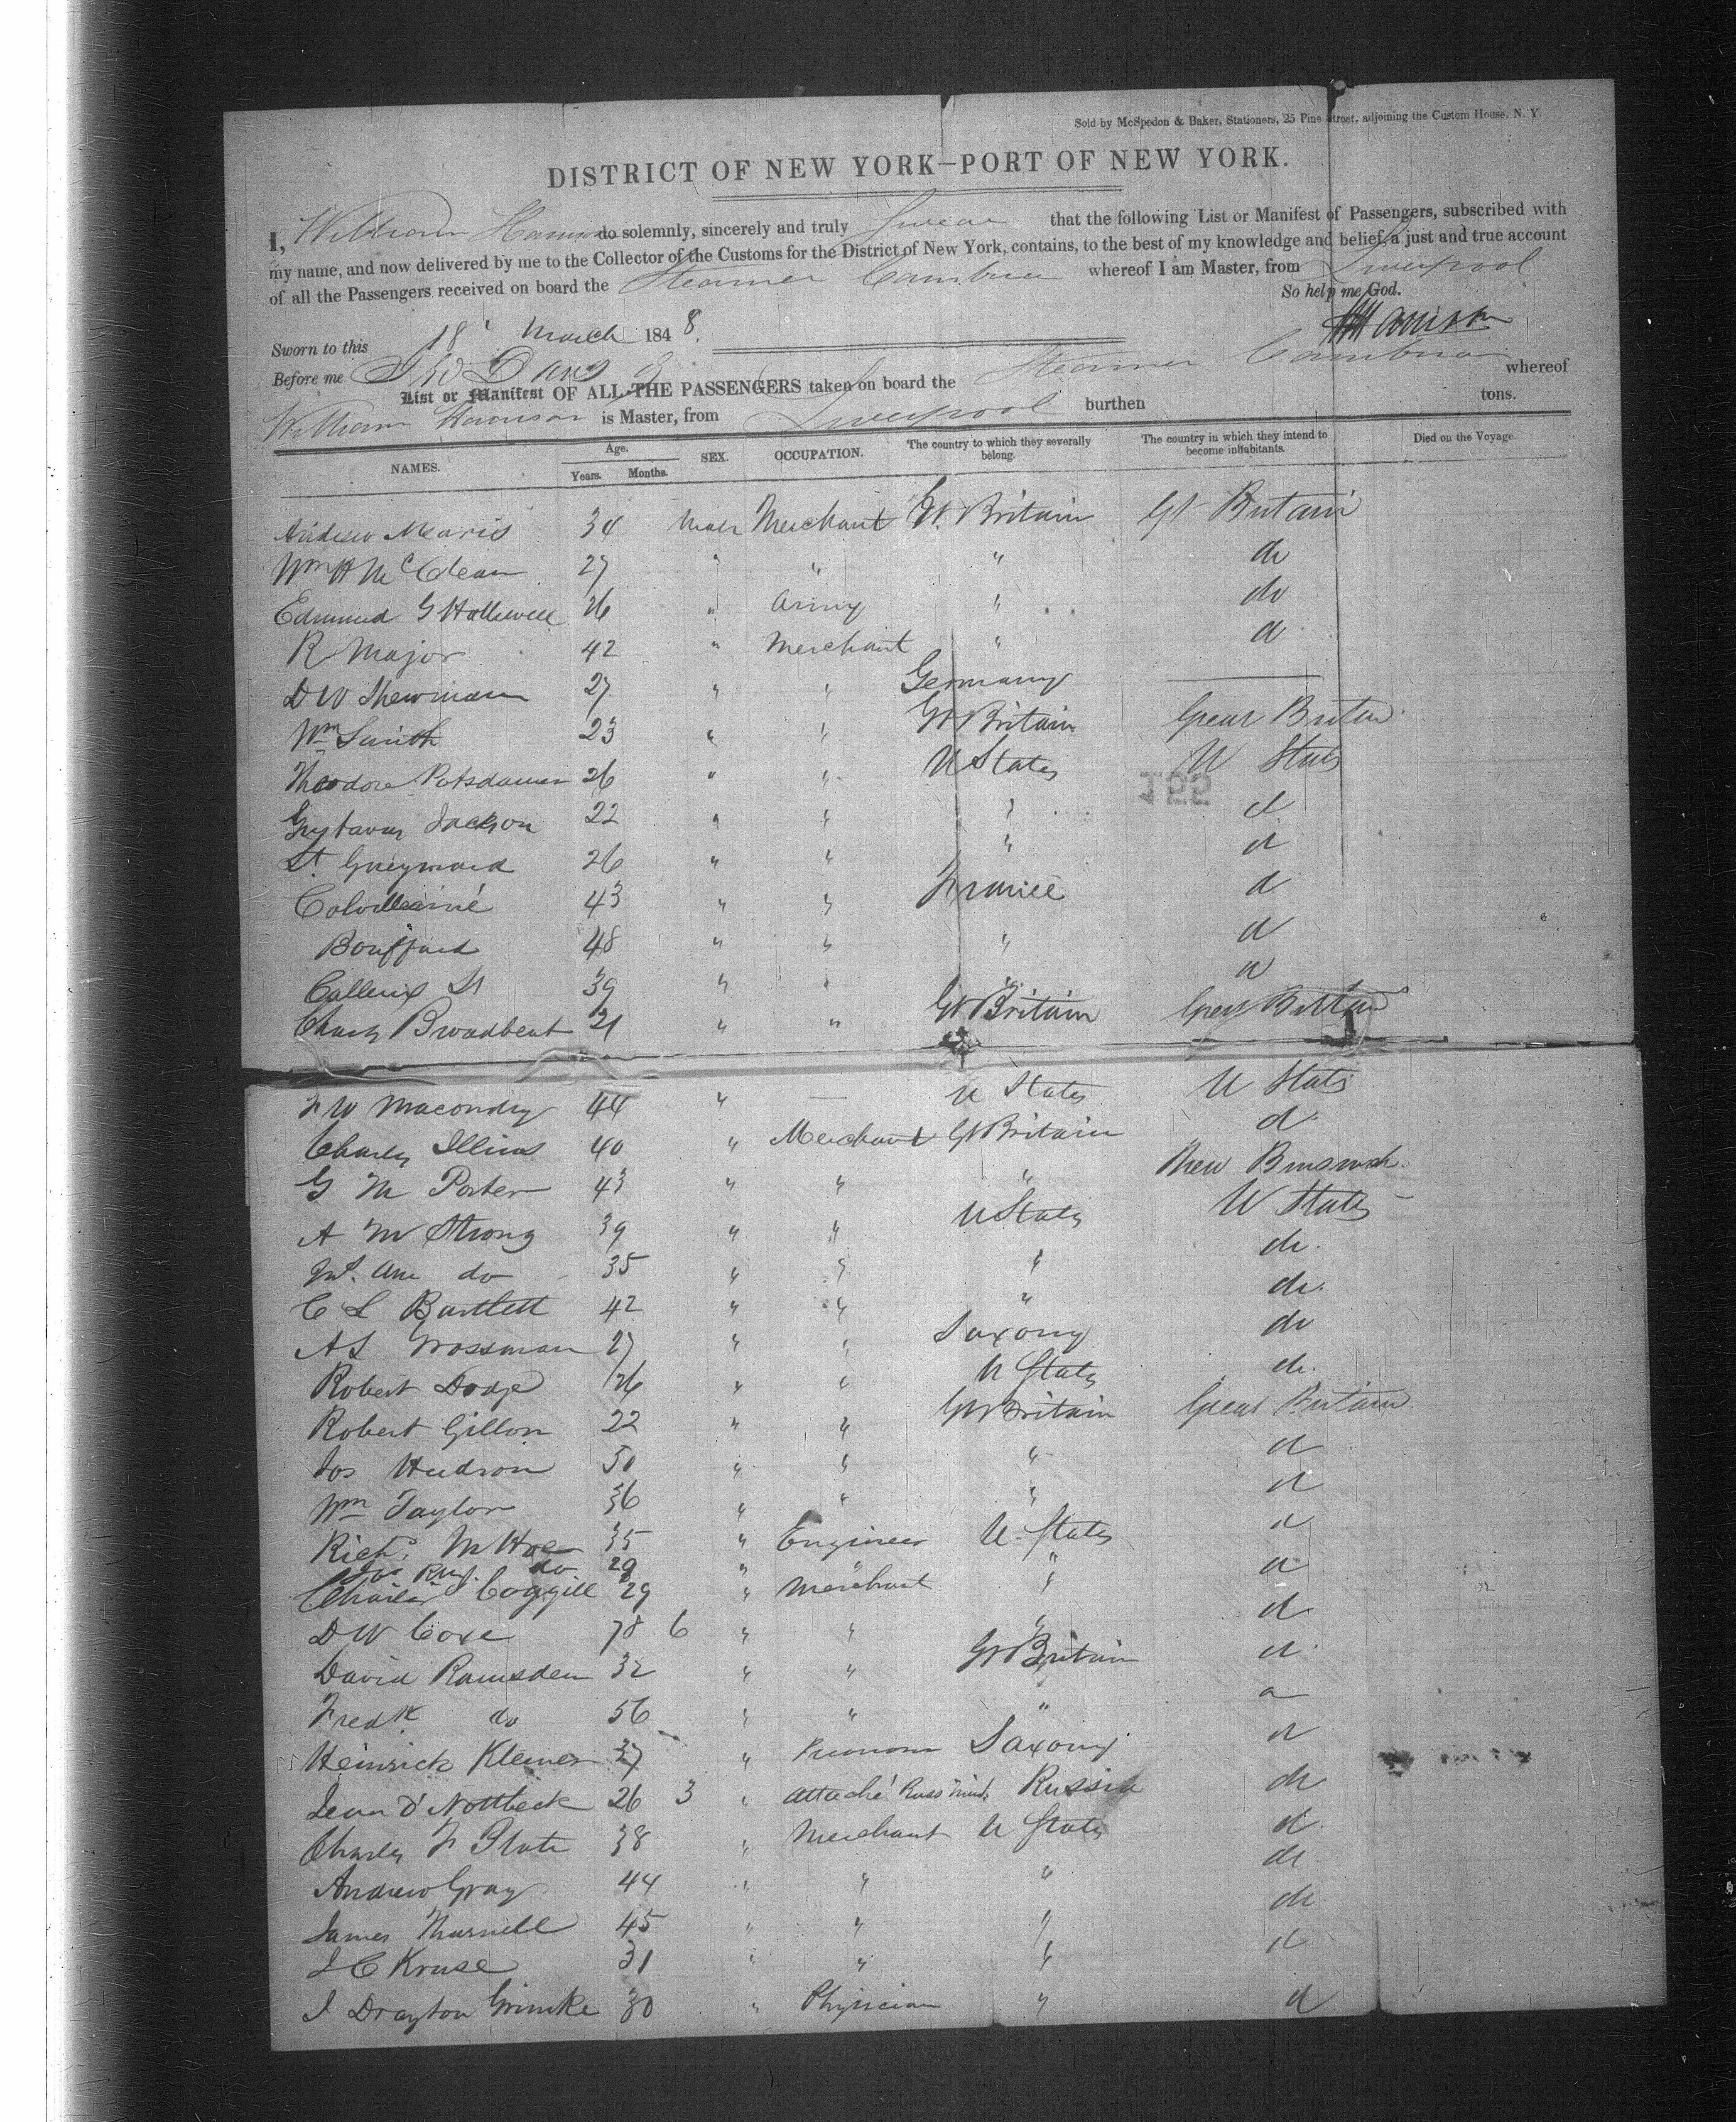 Sold by McSpedon & Baker, Stationers, 25 Pine Street, adjoining the Custom House, N. Y.
DISTRICT OF NEW YORK—PORT OF NEW YORK.
I, William Harrison do solemnly, sincerely and truly swear that the following List or Manifest of Passengers, subscribed with
my name, and now delivered by me to the Collector of the Customs for the District of New York, contains, to the best of my knowledge and belief, a just and true account
of all the Passengers received on board the Steamer Cambria whereof I am Master, from Liverpool
So help me God.
Sworn to this 18 March 1848. W Harrison
Before me
List or Manifest OF ALL THE PASSENGERS taken on board the Steamer Cambria whereof
William Harrison is Master, from Liverpool burthen tons.
NAMES. Age. Years. Months. SEX. OCCUPATION. The country to which they severally belong. The country in which they intend to become inhabitants. Died on the Voyage.
Andrew Mearis 34 Male Merchant Gt. Britain Gt Britain
Wm H McClean 27 " " " do
Edmund G Hallewell 26 " Army " do
R Major 42 " Merchant " d
D W Shewman 27 " " Germany
Wm Smith 23 " " Gt Britain Great Britain
Theodore Potsdamer 26 " " U States U States
Gustavus Jackson 22 " " " d
26 " " " d
43 " " France d
Bouffard 48 " " " d
39 " " " d
Charles Broadbent 21 " " Gt Britain Great Britain
F W Macondry 44 " — U States U States
Charles Illius 40 " Merchant Gt Britain d
G M Porter 43 " " " New Brunswick.
A M Strong 39 " " U States U States
Ann do 35 " " " do.
C L Bartlett 42 " " " do.
A L Grossman 27 " " Saxony do
Robert Dodge 26 " " U States do.
Robert Gillon 22 " " Gt Britain Great Britain
Jos Hudson 50 " " " d
Wm Taylor 36 " " " d
Richd. M Hoe 35 " Engineer U. States d
do 29 " "
Charles Coggill 29 " Merchant " d
D W Coxe 78 6 " " " d
David Ramsden 32 " " Gt Britain d
Fredk do 56 " " " d
Heinrich Kleiner 37 " Saxony d
Jean D' Nottbeck 26 3 " Attaché Russ Minis. Russia do
Charles F Plate 38 " Merchant U States d.
Andrew Gray 44 " " " do
James Thurnell 45 " " " do
J C Kruse 31 " " " d
J Drayton Grimke 30 " Physician " d